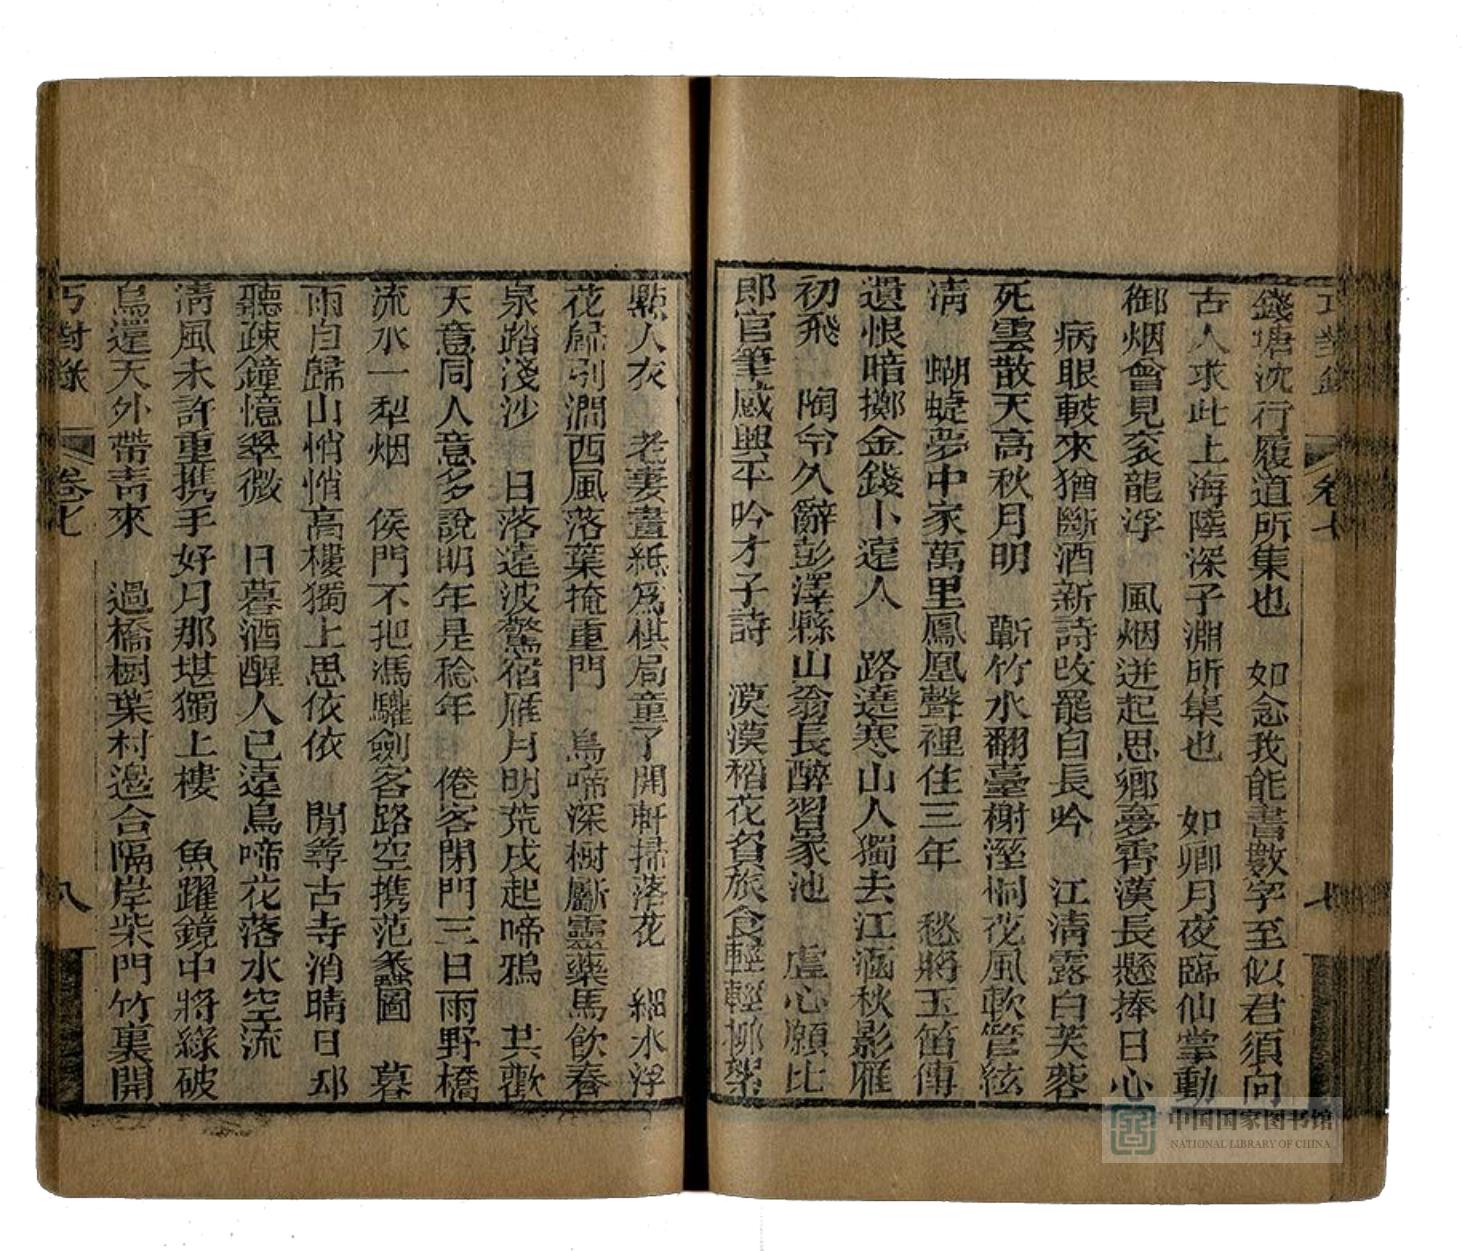 巧對錄 卷七 七
錢塘沈行履道所集也 如念我能書數字至似君須向
古人求此上海陸深子淵所集也 如卿月夜臨仙掌動
御烟會見袞龍浮 風烟迸起思鄉夢霄漢長懸捧日心
病眼較來猶斷酒新詩改罷自長吟 江清露白芙蓉
死雲散天高秋月明 蘄竹水翻臺榭溼桐花風軟管絃
清 蝴蜨夢中家萬里鳳凰聲裡住三年 愁將玉笛傳
遺恨暗擲金錢卜遠人 路遶寒山人獨去江涵秋影雁
初飛 陶令久辭彭澤縣山翁長醉習家池 虛心願比
郎官筆感興平吟才子詩 漠漠稻花資旅食輕輕柳絮
點人衣 老妻畫紙爲棋局童了開軒掃落花 細水浮
花歸別澗西風落葉掩重門 鳥啼深樹斸靈藥馬飲春
泉踏淺沙 日落遠波驚宿雁月明荒戍起啼鴉 共歡
天意同人意多說明年是稔年 倦客閉門三日雨野橋
流水一犁烟 侯門不把馮驩劍客路空携范蠡圖 暮
雨自歸山悄悄高樓獨上思依依 閒尋古寺消晴日却
聽疎鐘憶翠微 日暮酒醒人已遠鳥啼花落水空流
淸風未許重携手好月那堪獨上樓 魚躍鏡中將綠破
鳥還天外帶靑來 過橋樹葉村邊合隔岸柴門竹裏開
巧對錄 卷七 八
中国国家图书馆
NATIONAL LIBRARY OF CHINA